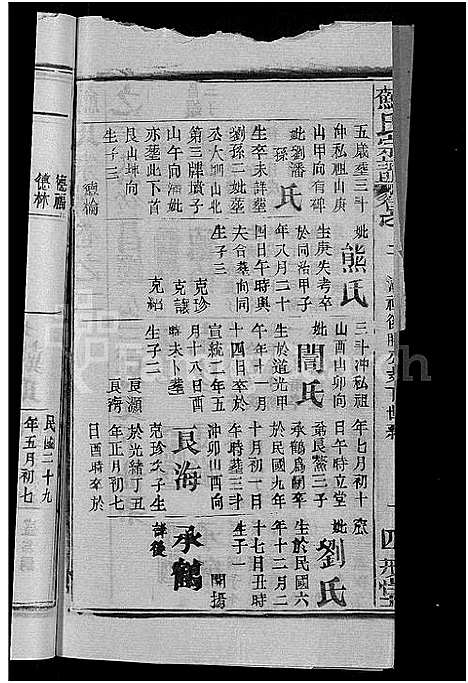 五歲塟三斗
仲私祖山庚
山甲向有碑
妣劉潘氏
孫
生卒未詳塟
劉孫二妣塟
公大朝山北
第三牌墳子
山午向潘妣
亦塟此下首
艮山坤向
生子三
德棆
德福
德林
妣熊氏
生庚失考卒
於同治甲子
年八月二十
四日午時與
夫合塟向同
生子三
克珍
克讓
克紹
三斗冲私祖
山酉山卯向
妣閆氏
生於道光甲
午年十一月
十四日卒於
宣統二年五
月十八日酉
時夫卜塟
生子二
良灝
良濤
年七月初十
日午時立堂
弟良鰲三子
承鶴爲嗣卒
於民國九年
十月初一日
年時塟三斗
冲卯山酉向
良海
克珍次子生
於光緒丁丑
年正月初七
日酉時卒於
妣劉氏
生於民國六
年十二月二
十七日丑時
生子一
開揚
承鶴
詳後
民國二十九
年五月初七